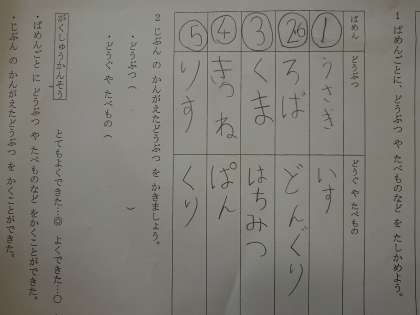 1 ばめんごとに、どうぶつ や たべものなど を たしかめよう。
ばめん どうぶつ どうぐ や たべもの
① うさぎ いす
② ろば どんぐり
③ くま はちみつ
④ きつね ぱん
⑤ りす くり
2 じぶん の かんがえたどうぶつ を かきましょう。
・どうぶつ( )
・どうぐ や たべもの(
がくしゅうかんそう とてもよくできた…◎ よくできた…○
・ばめんごと に どうぶつ や たべものなど を かくことができた。
・じぶん の かんがえたどうぶつ を かくことができた。